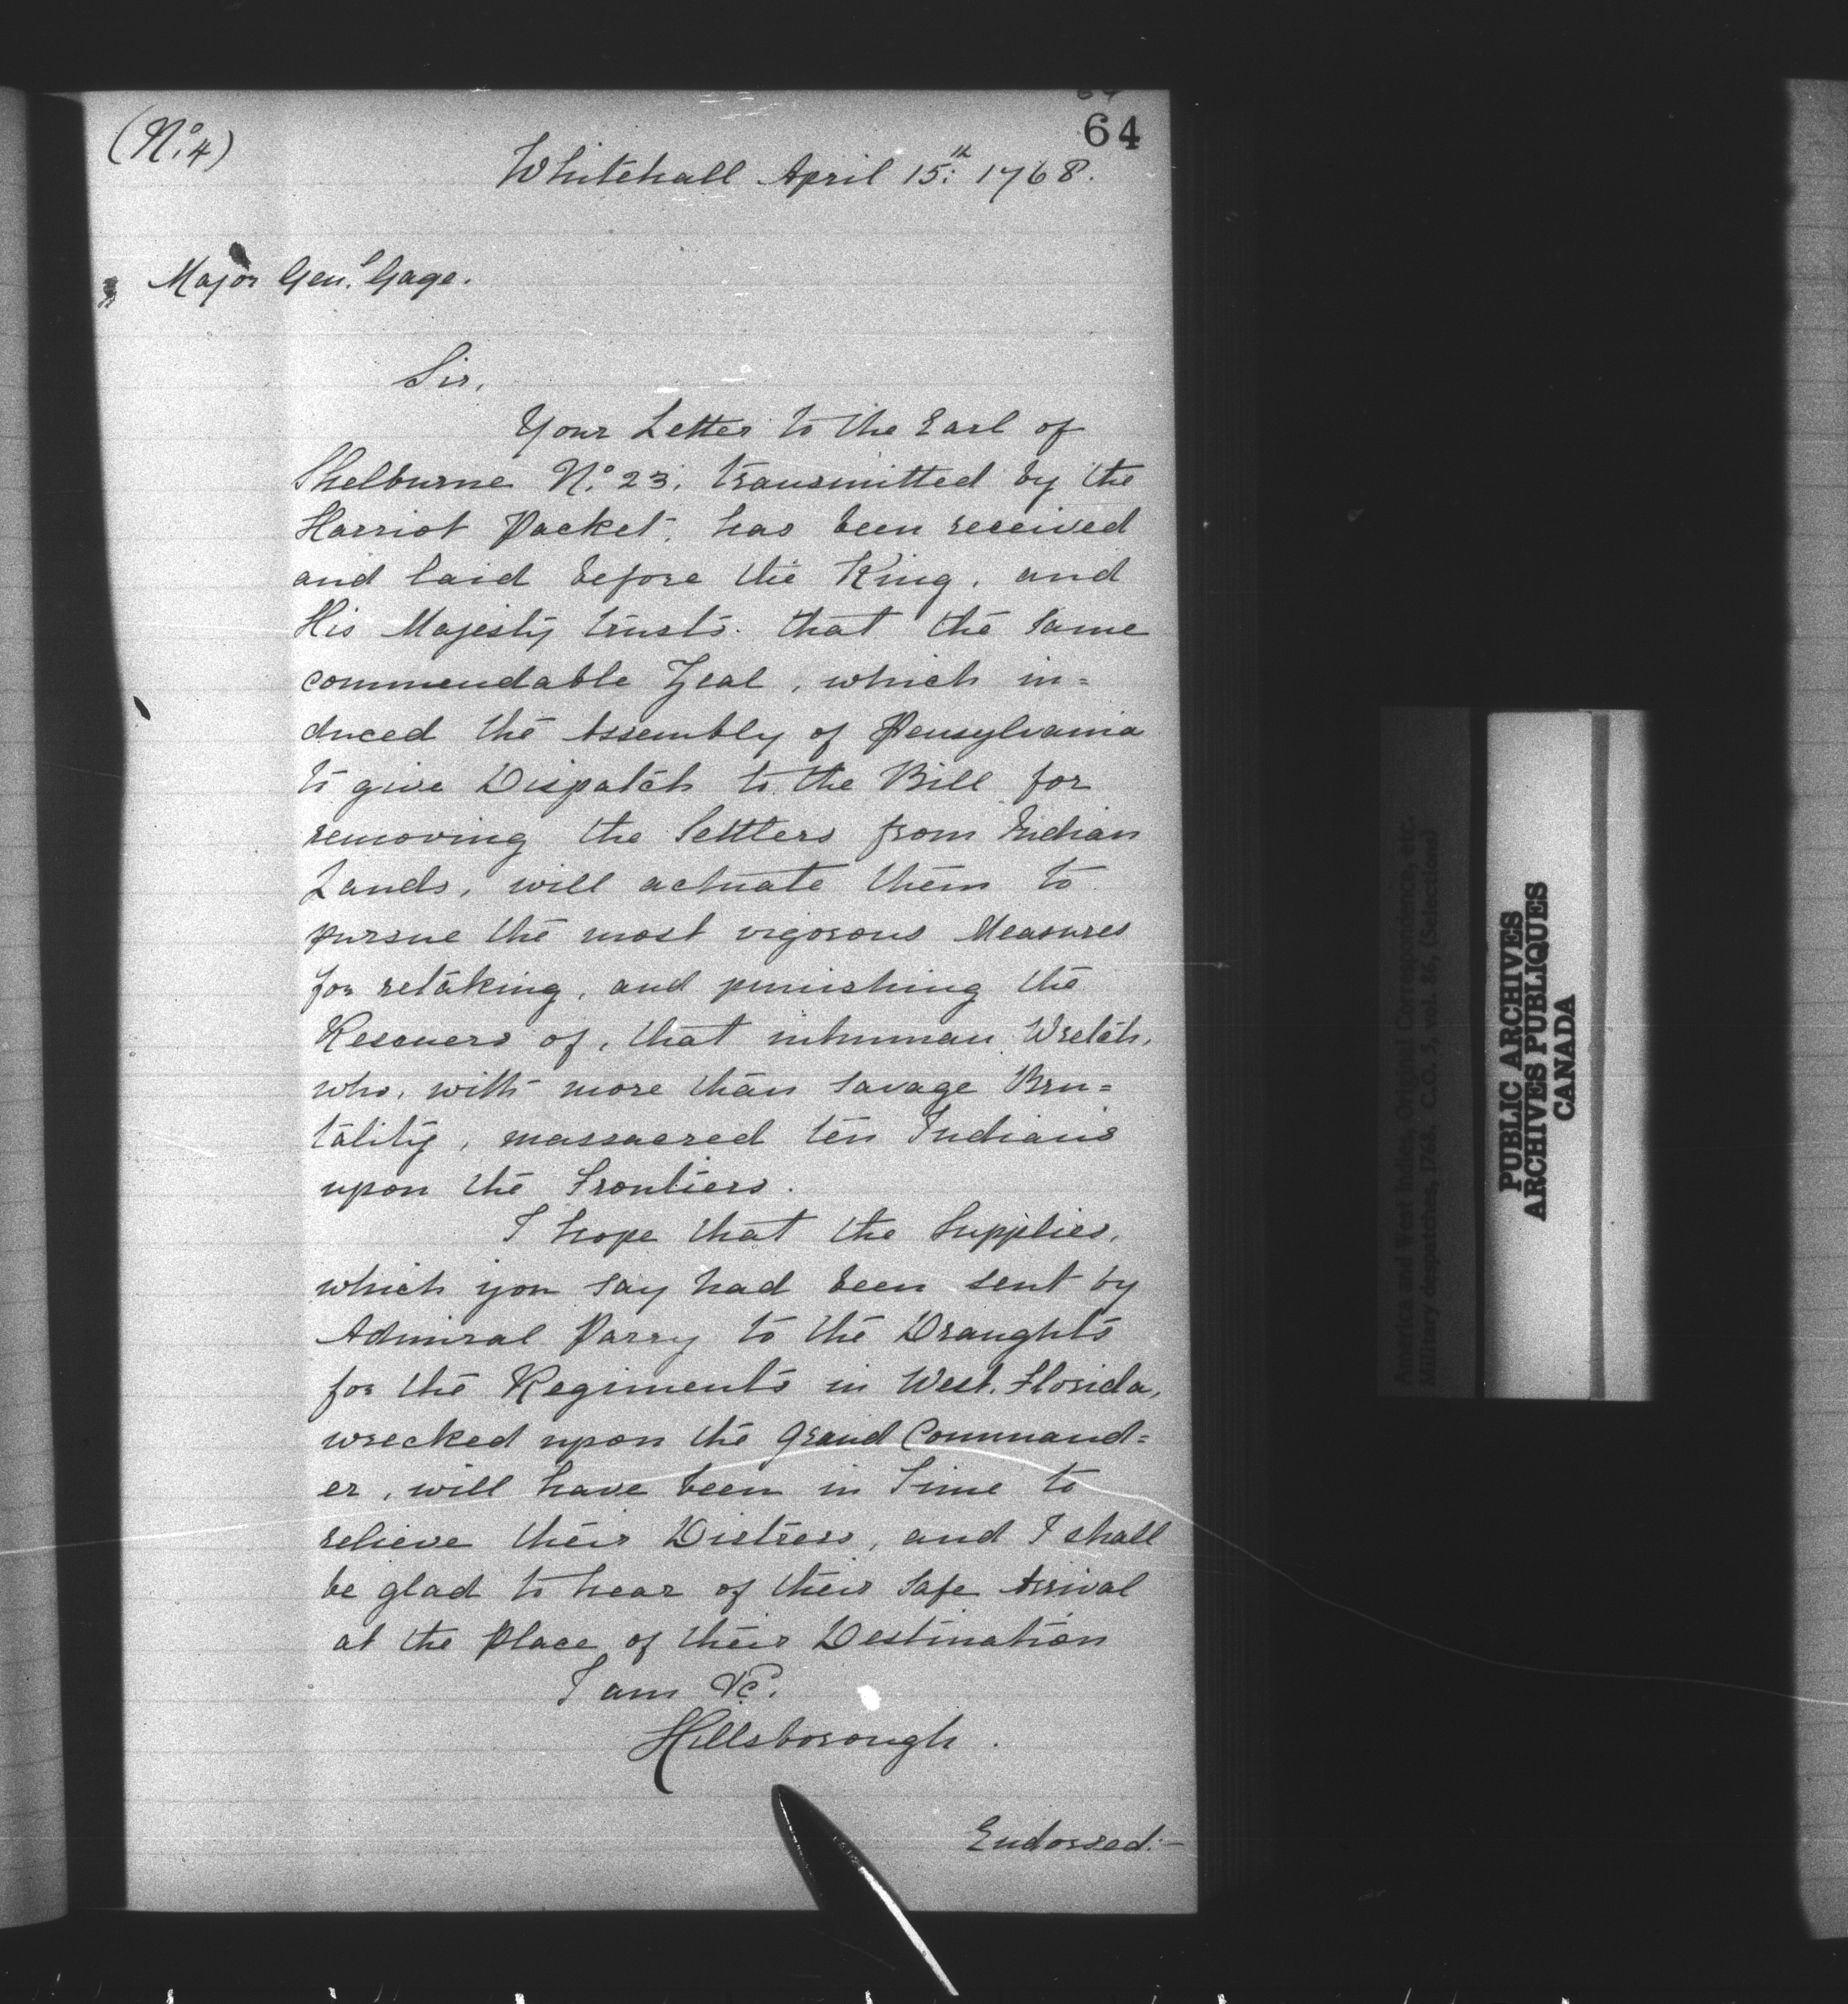 64
(No. 4)
Whitehall April 15th: 1768.
Major Genl. Gage.
Sir,
Your Letter to the Earl of
Shelburne No. 23, transmitted by the
Harriot Packet, has been received
and laid before the King, and
His Majesty trusts that the same
commendable Zeal, which in=
duced the Assembly of Pensylvania
to give Dispatch to the Bill for
removing the Settlers from Indian
Lands, will actuate them to
pursue the most vigorous Measures
for retaking, and punishing the
Rescuers of, that inhuman Wretch,
who, with more than savage Bru=
tality, massacred ten Indians
upon the Frontiers.
I hope that the Supplies,
which you say had been sent by
Admiral Parry to the Draughts
for the Regiments in West Florida,
wrecked upon the Grand Command=
er, will have been in Time to
relieve their Distress, and I shall
be glad to hear of their safe Arrival
at the Place of their Destination
I am &c.
Hillsborough.
Endorsed:-
America and West Indies, Original Correspondence, etc.
Military despatches, 1768. C.O. 5, vol. 86, (Selections)
PUBLIC ARCHIVES
ARCHIVES PUBLIQUES
CANADA